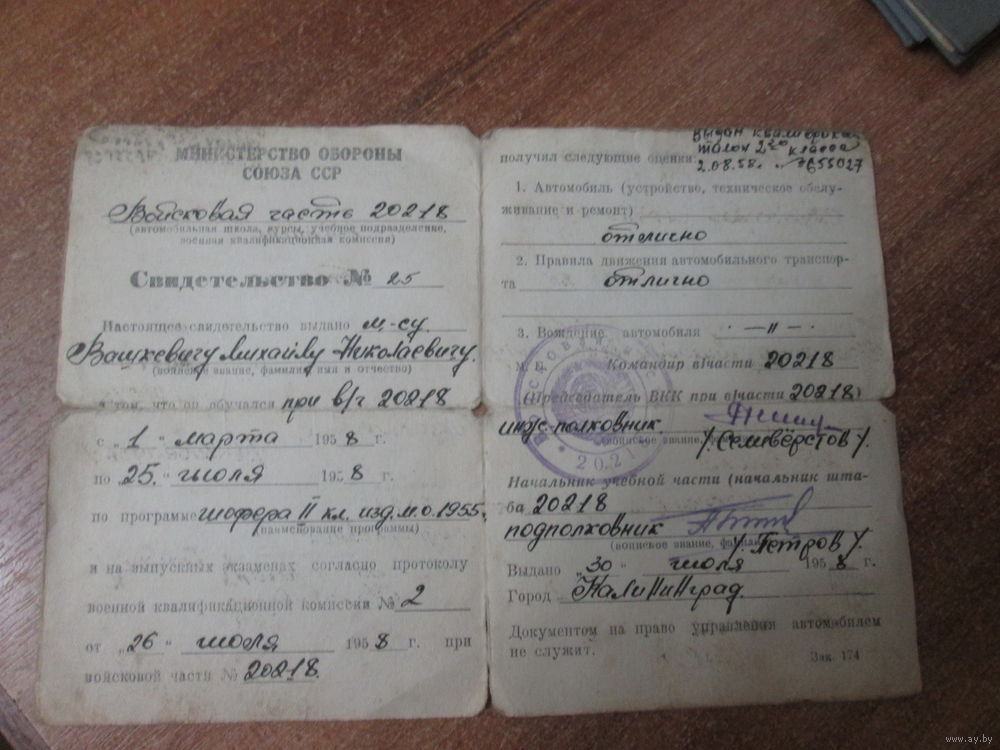 МИНИСТЕРСТВО ОБОРОНЫ
СОЮЗА ССР
Войсковая часть 20218
(автомобильная школа, курсы, учебное подразделение,
военная квалификационная комиссия)
Свидетельство № 25
Настоящее свидетельство выдано м.-су.
Вашкевичу Михаилу Николаевичу.
(воинское звание, фамилия, имя и отчество)
в том, что он обучался при в/ч 20218
с „1“ марта 1958 г.
по „25.“ июля 1958 г.
по программе шофера II кл. изд. м.о. 1955.
(наименование программы)
и на выпускных экзаменах согласно протоколу
военной квалификационной комиссии № 2
от „26“ июля 1958 г. при
войсковой части № 20218.
выдан
талон 2го класса
2.08.58. №655027
получил следующие оценки:
1. Автомобиль (устройство, техническое обслу-
живание и ремонт)
отлично
2. Правила движения автомобильного транспор-
та отлично
3. Вождение автомобиля — „ —
М. П. Командир в/части 20218
(Председатель ВКК при в/части 20218)
инж-полковник
(воинское звание,
/Семивёрстов/.
Начальник учебной части (начальник шта-
ба 20218
подполковник
(воинское звание,
/Петров/.
Выдано „30“ июля 1958 г.
Город Калининград.
Документом на право управления автомобилем
не служит.
Зак. 174
2021
www.ay.by